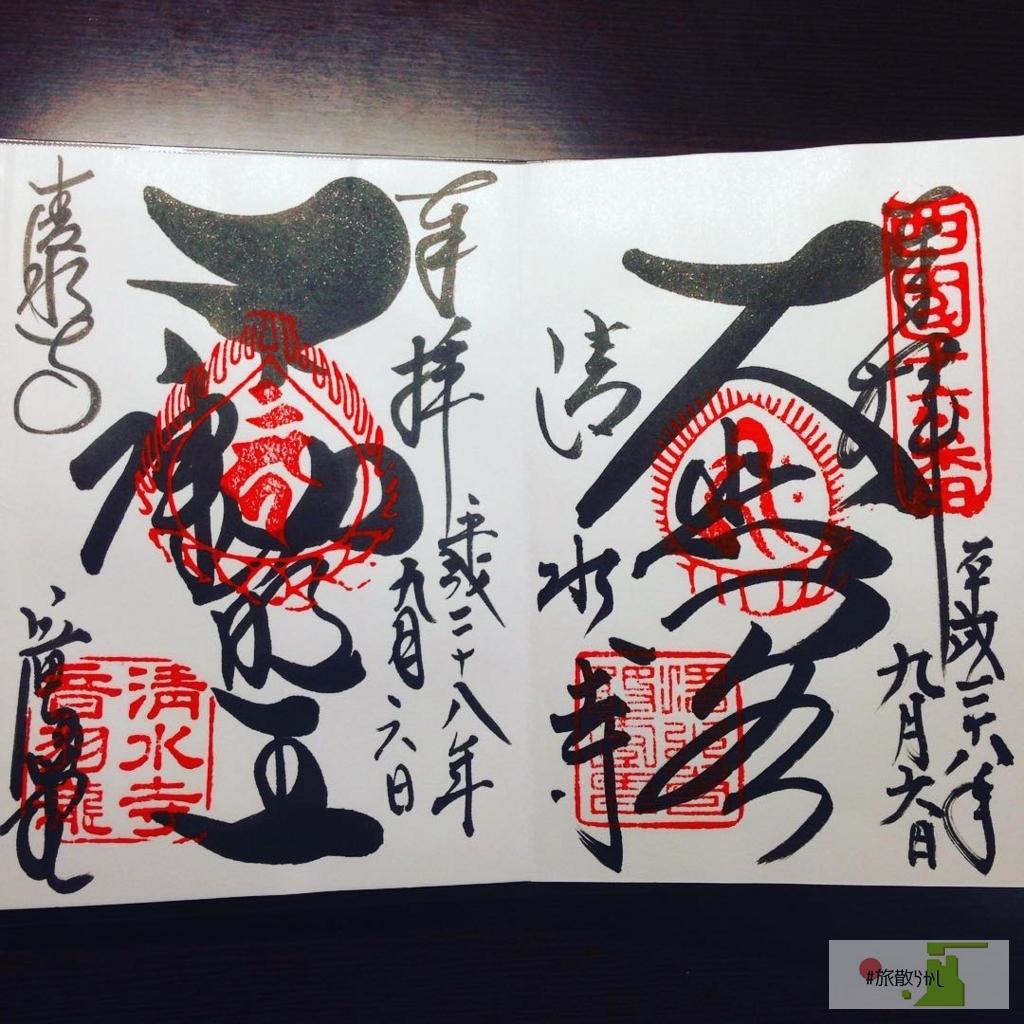 西國十六番
奉拝
平成二十八年
九月六日
大悲閣
清水寺
奉拝
平成二十八年
九月六日
清水寺
音羽瀧
清水寺
#旅散らかし